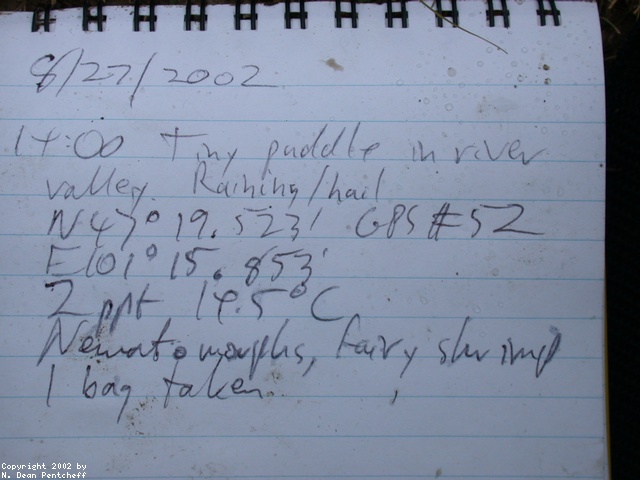 8/27/2002
14:00 Tiny puddle in river
valley. Raining/hail
N47° 19.523' GPS #52
E101° 15.853'
2 ppt 14.5° C
Nematomorphs, fairy shrimp
1 bag taken.
Copyright 2002 by
N. Dean Pentcheff